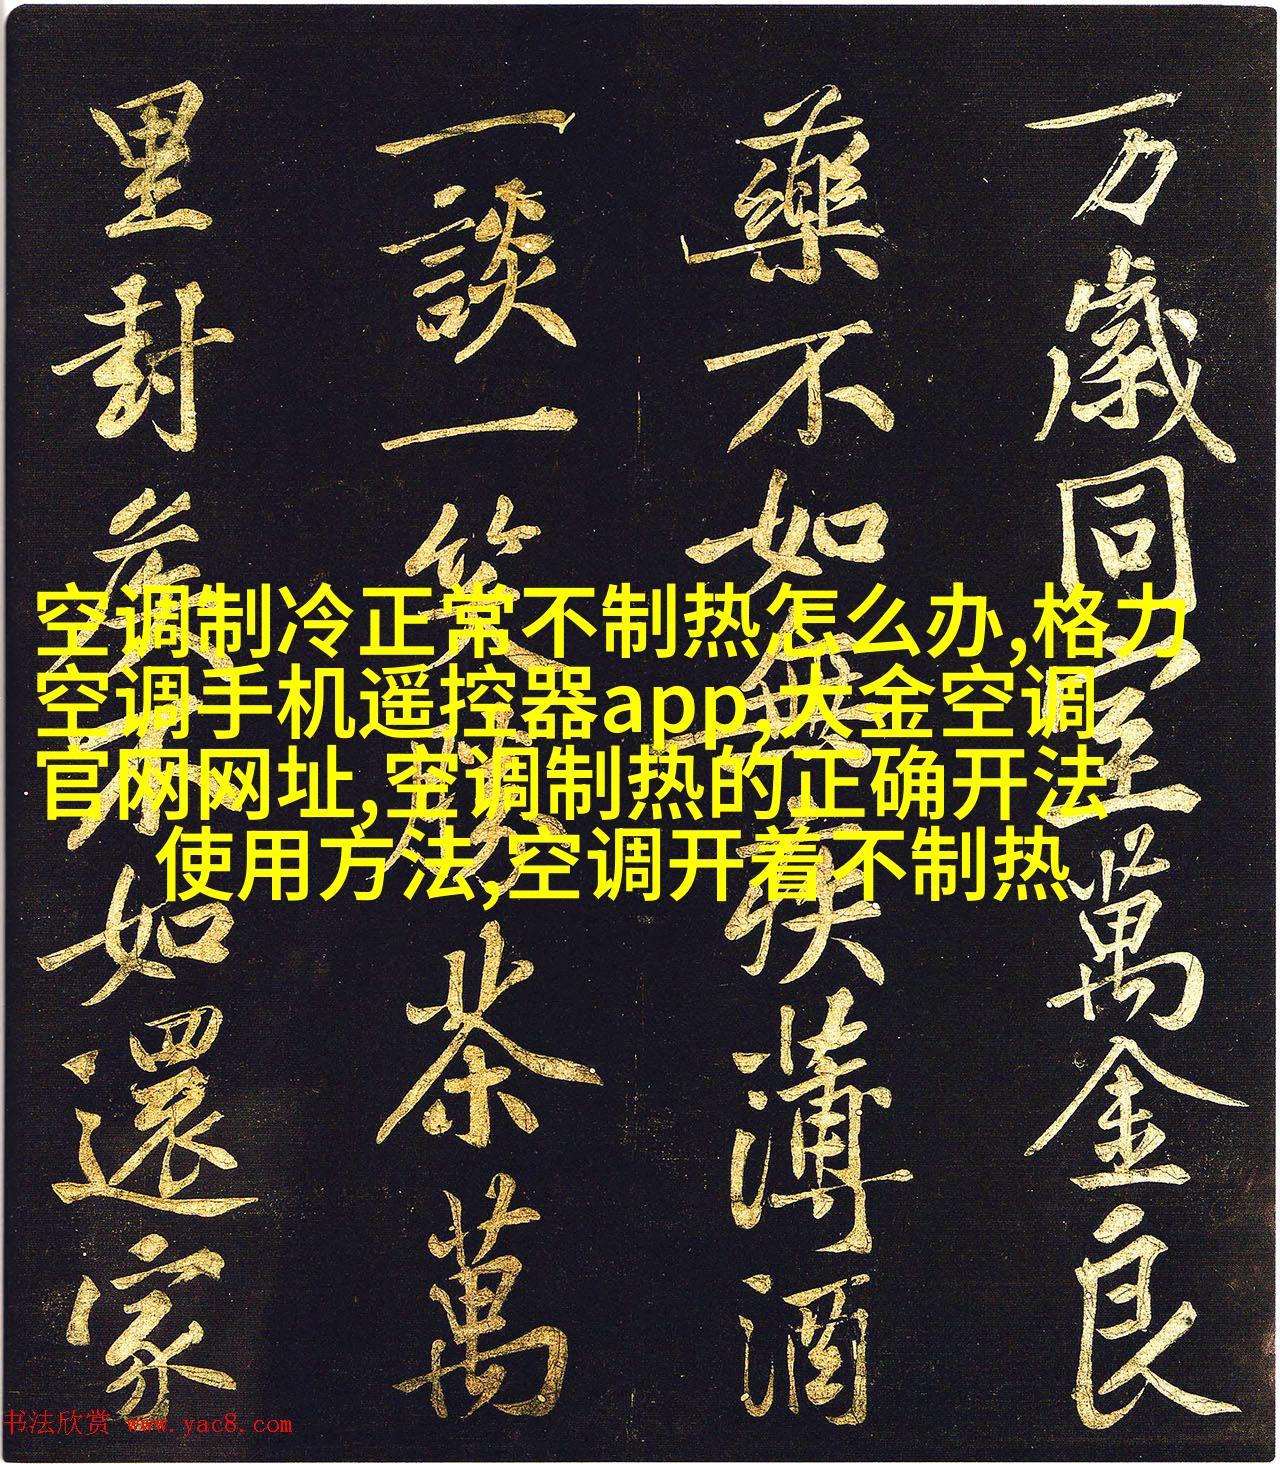 万歲同至萬金良
藥不如無疾薄酒
一談一笑勝茶萬
里封侯如還家
空调制冷正常不制热怎么办,格力
空调手机遥控器app,大金空调
官网网址,空调制热的正确开法
使用方法,空调开着不制热
书法欣赏 www.yac8.com